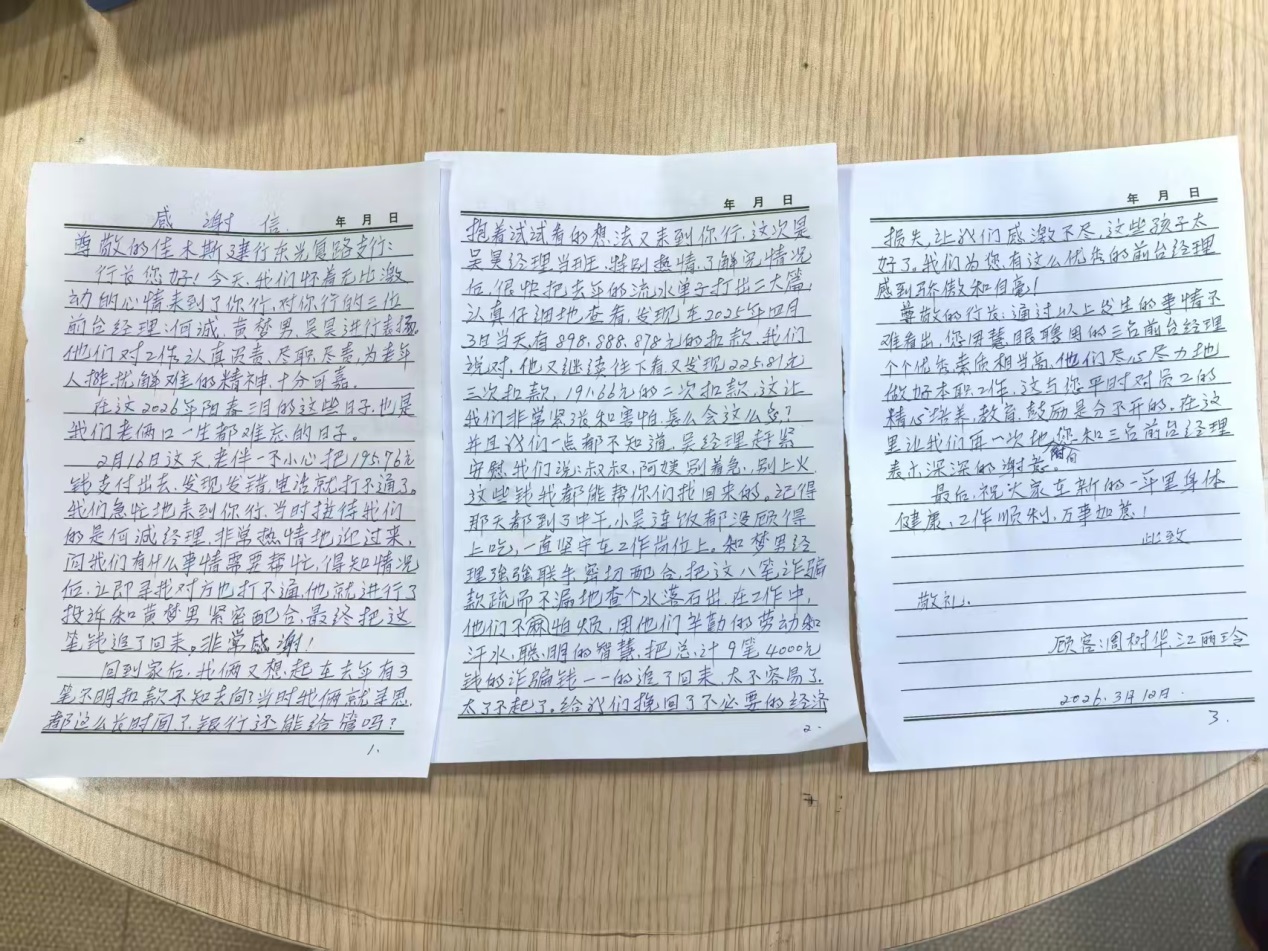 感谢信
年 月 日
尊敬的佳木斯建行东光复路支行:
行长您好!今天,我们怀着无比激
动的心情来到了你行,对你行的三位
前台经理:何诚,黄梦男,吴昊进行表扬,
他们对工作认真负责,尽职尽责,为老年
人排忧解难的精神,十分可嘉。
在这2026年阳春三月的这些日子,也是
我们老俩口一生都难忘的日子。
2月16日这天,老伴一不小心把195.76元
钱支付出去,发现发错,电话就打不通了。
我们急忙地来到你行,当时接待我们
的是何诚经理,非常热情地迎过来,
问我们有什么事情需要帮忙,得知情况
后,立即寻找对方也打不通,他就进行了
投诉和黄梦男紧密配合,最终把这
笔钱追了回来。非常感谢!
回到家后,我俩又想起在去年有3
笔不明扣款不知去向了当时我俩就寻思,
都这么长时间了,银行还能给管吗?
1.
年 月 日
抱着试试看的想法又来到你行,这次吴
昊经理当班,特别热情,了解完情况
后,很快把去年的流水单子打出三大篇,
认真仔细地查看,发现在2025年四月
3日当天有898,888,878元的扣款,我们
说对,他又继续往下看又发现225.81元
三次扣款,191.66元的二次扣款,这让
我们非常紧张和害怕,怎么会这么多?
并且我们一点都不知道,吴经理赶紧
安慰我们说:叔叔,阿姨别着急,别上火
这些钱我都能帮你们找回来的。记得
那天都到了中午,小吴连饭都没顾得
上吃,一直坚守在工作岗位上。和梦男经
理强强联手密切配合,把这八笔诈骗
款疏而不漏地查个水落石出,在工作中,
他们不麻怕烦,用他们辛勤的劳动和
汗水,聪明的智慧,把总计9笔4000元
钱的诈骗钱一一的追了回来,太不容易了,
太了不起了。给我们挽回了不必要的经济
2.
年 月 日
损失,让我们感激不尽,这些孩子太
好了。我们为您有这么优秀的前台经理
感到骄傲和自豪!
尊敬的行长:通过以上发生的事情不
难看出,您用慧眼聘用的三名前台经理
个个优秀素质相当高,他们尽心尽力地
做好本职工作,这与您平时对员工的
精心培养,教育,鼓励是分不开的。在这
里让我们再一次地您和三名前台经理
表示深深的谢意。
最后,祝大家在新的一年里身体
健康,工作顺利,万事如意!
此致
敬礼.
顾客:周树华,江丽玲
2026.3月12日.
3.